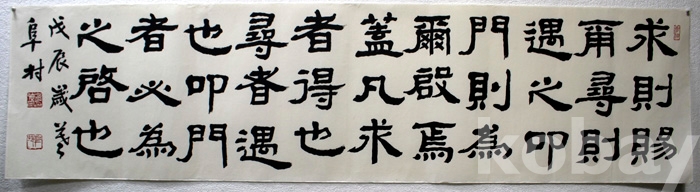 求則賜
爾尋則
遇之叩
門則為
爾啟焉
蓋凡求
者得也
尋者遇
也叩門
者必為
之啓也
戊辰歲
阜村
kobay